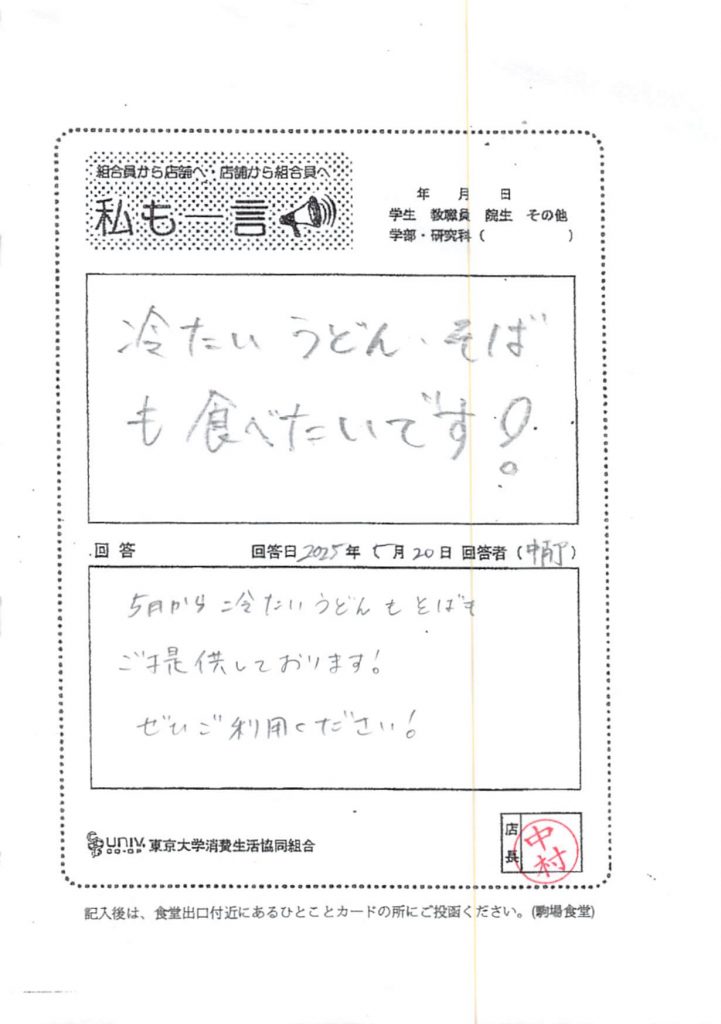 組合員から店舗へ・店舗から組合員へ
私も一言
年 月 日
学生 教職員 院生 その他
学部・研究科( )
冷たい うどん、そば
も 食べたいです!
回答 回答日 2025年 5月 20日 回答者(中村)
5月から 冷たい うどんも そばも
ご提供しております!
ぜひご利用ください!
UNIV.
CO-OP
東京大学消費生活協同組合
店長
中村
記入後は、食堂出口付近にあるひとことカードの所にご投函ください。(駒場食堂)